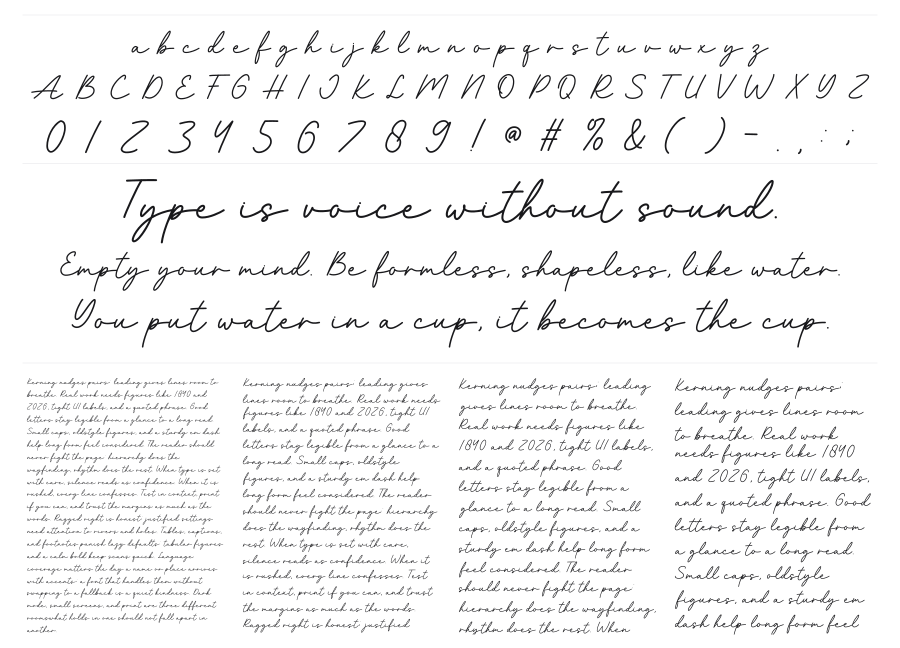 a b c d e f g h i j k l m n o p q r s t u v w x y z
A B C D E F G H I J K L M N O P Q R S T U V W X Y Z
0 1 2 3 4 5 6 7 8 9 ! @ # % & ( ) - . , : ;
Type is voice without sound.
Empty your mind. Be formless, shapeless, like water.
You put water in a cup, it becomes the cup.
Kerning nudges pairs: leading gives lines room to
breathe. Real work needs figures like 1840 and
2026, tight UI labels, and a quoted phrase. Good
letters stay legible from a glance to a long read.
Small caps, oldstyle figures, and a sturdy em dash
help long form feel considered. The reader should
never fight the page; hierarchy does the
wayfinding, rhythm does the rest. When type is set
with care, silence reads as confidence. When it is
rushed, every line confesses. Test in context, print
if you can, and trust the margins as much as the
words. Ragged right is honest; justified settings
need attention to rivers and holes. Tables, captions,
and footnotes punish lazy defaults: tabular figures
and a calm bold keep scans quick. Language
coverage matters the day a name or place arrives
with accents: a font that handles them without
swapping to a fallback is a quiet kindness. Dark
mode, small screens, and print are three different
rooms; what holds in one should not fall apart in
another.
Kerning nudges pairs: leading gives
lines room to breathe. Real work needs
figures like 1840 and 2026, tight UI
labels, and a quoted phrase. Good
letters stay legible from a glance to a
long read. Small caps, oldstyle
figures, and a sturdy em dash help
long form feel considered. The reader
should never fight the page; hierarchy
does the wayfinding, rhythm does the
rest. When type is set with care,
silence reads as confidence. When it
is rushed, every line confesses. Test
in context, print if you can, and trust
the margins as much as the words.
Ragged right is honest; justified
Kerning nudges pairs: leading
gives lines room to breathe.
Real work needs figures like
1840 and 2026, tight UI labels,
and a quoted phrase. Good
letters stay legible from a
glance to a long read. Small
caps, oldstyle figures, and a
sturdy em dash help long form
feel considered. The reader
should never fight the page;
hierarchy does the wayfinding,
rhythm does the rest. When
Kerning nudges pairs:
leading gives lines room
to breathe. Real work
needs figures like 1840
and 2026, tight UI labels,
and a quoted phrase. Good
letters stay legible from
a glance to a long read.
Small caps, oldstyle
figures, and a sturdy em
dash help long form feel